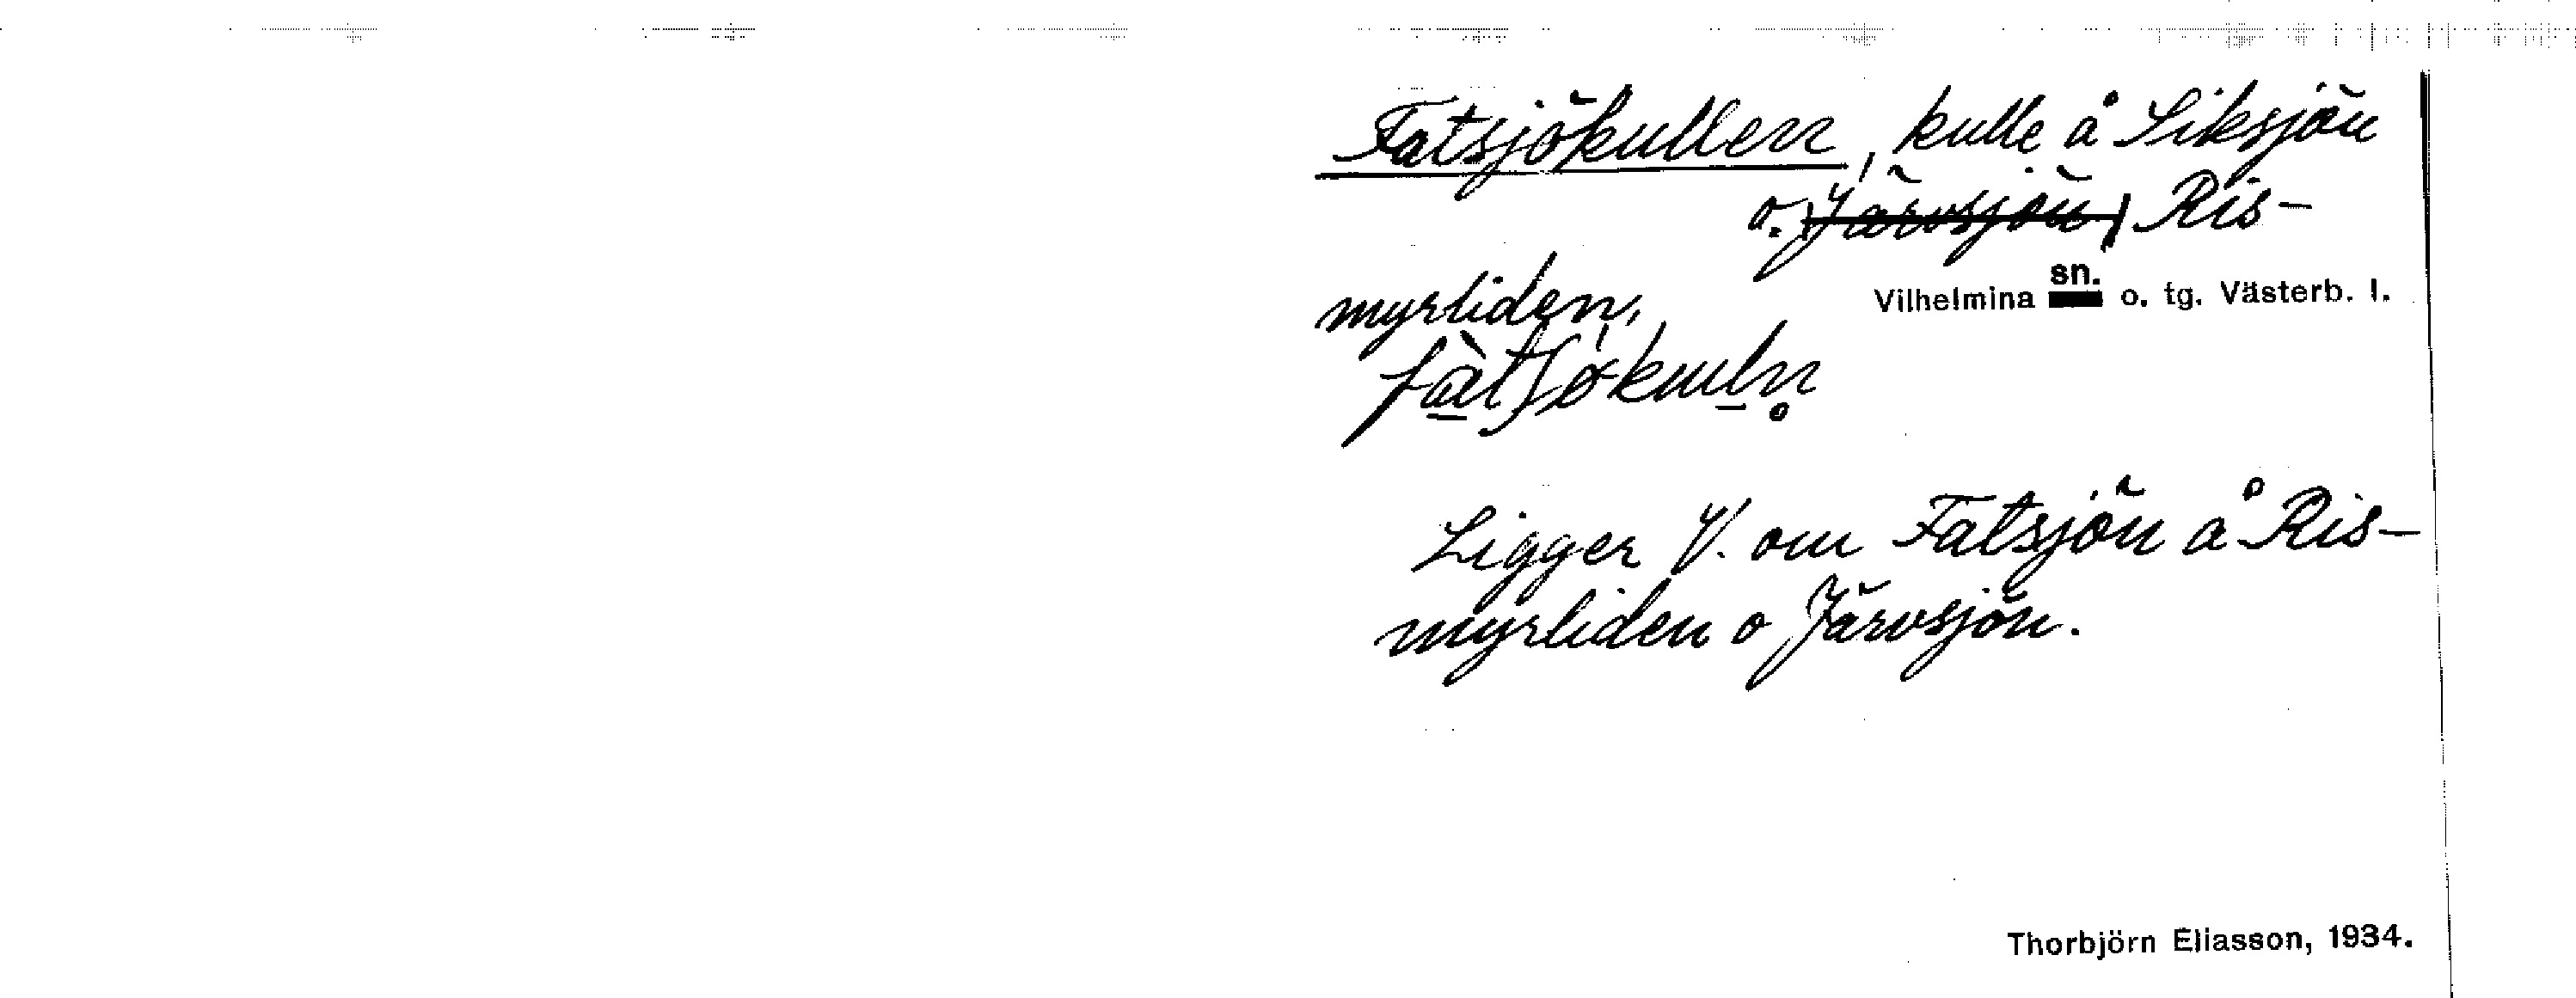 Fatsjökullen, kulle å Siksjön
o. Järvsjön, Ris-
myrliden,
Vilhelmina sn. o. tg. Västerb. l.
Ligger V. om Fatsjön å Ris-
myrliden o Järvsjön.
Thorbjörn Eliasson, 1934.